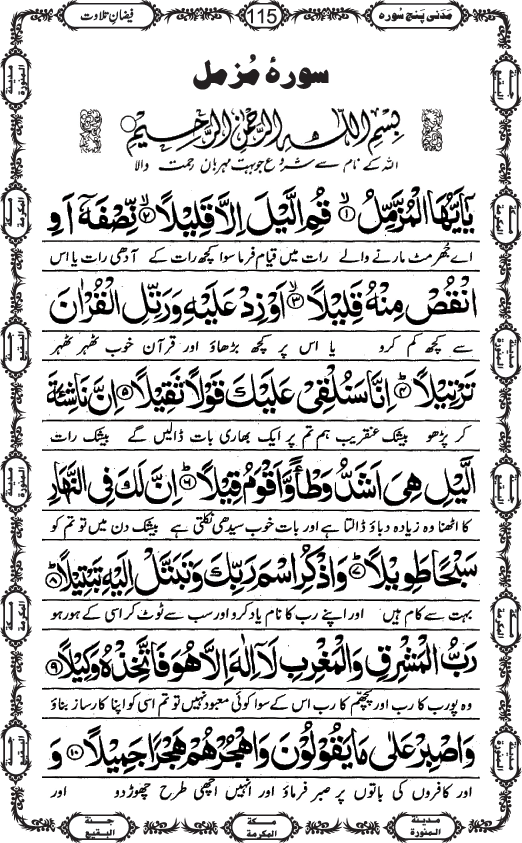 مَدَنی پَنج سُورہ
115
فیضانِ تلاوت
سورۂ مُزمل
بِسْمِ اللّٰهِ الرَّحْمٰنِ الرَّحِیْمِ
اللہ کے نام سے شروع جو بہت مہربان رحمت والا
یٰۤاَیُّهَا الْمُزَّمِّلُۙ۝۱ قُمِ الَّیْلَ اِلَّا قَلِیْلًاۙ۝۲ نِّصْفَهٗۤ اَوِ
اے جھرمٹ مارنے والے رات میں قیام فرما سوا کچھ رات کے آدھی رات یا اس
انْقُصْ مِنْهُ قَلِیْلًاۙ۝۳ اَوْ زِدْ عَلَیْهِ وَ رَتِّلِ الْقُرْاٰنَ
سے کچھ کم کرو یا اس پر کچھ بڑھاؤ اور قرآن خوب ٹھہر ٹھہر
تَرْتِیْلًاؕ۝۴ اِنَّا سَنُلْقِیْ عَلَیْكَ قَوْلًا ثَقِیْلًا۝۵ اِنَّ نَاشِئَةَ
کر پڑھو بیشک عنقریب ہم تم پر ایک بھاری بات ڈالیں گے بیشک رات
الَّیْلِ هِیَ اَشَدُّ وَطْاً وَّ اَقْوَمُ قِیْلًاؕ۝۶ اِنَّ لَكَ فِی النَّهَارِ
کا اٹھنا وہ زیادہ دباؤ ڈالتا ہے اور بات خوب سیدھی نکلتی ہے بیشک دن میں تو تم کو
سَبْحًا طَوِیْلًاؕ۝۷ وَ اذْكُرِ اسْمَ رَبِّكَ وَ تَبَتَّلْ اِلَیْهِ تَبْتِیْلًاؕ۝۸
بہت سے کام ہیں اور اپنے رب کا نام یاد کرو اور سب سے ٹوٹ کر اسی کے ہو رہو
رَبُّ الْمَشْرِقِ وَ الْمَغْرِبِ لَاۤ اِلٰهَ اِلَّا هُوَ فَاتَّخِذْهُ وَكِیْلًا۝۹
وہ پورب کا رب اور پچھم کا رب اس کے سوا کوئی معبود نہیں تو تم اسی کو اپنا کارساز بناؤ
وَ اصْبِرْ عَلٰى مَا یَقُوْلُوْنَ وَ اهْجُرْهُمْ هَجْرًا جَمِیْلًا۝۱۰ وَ
اور کافروں کی باتوں پر صبر فرماؤ اور انہیں اچھی طرح چھوڑ دو اور
مدینۃ المنورۃ
مکۃ المکرمۃ
جنۃ البقیع